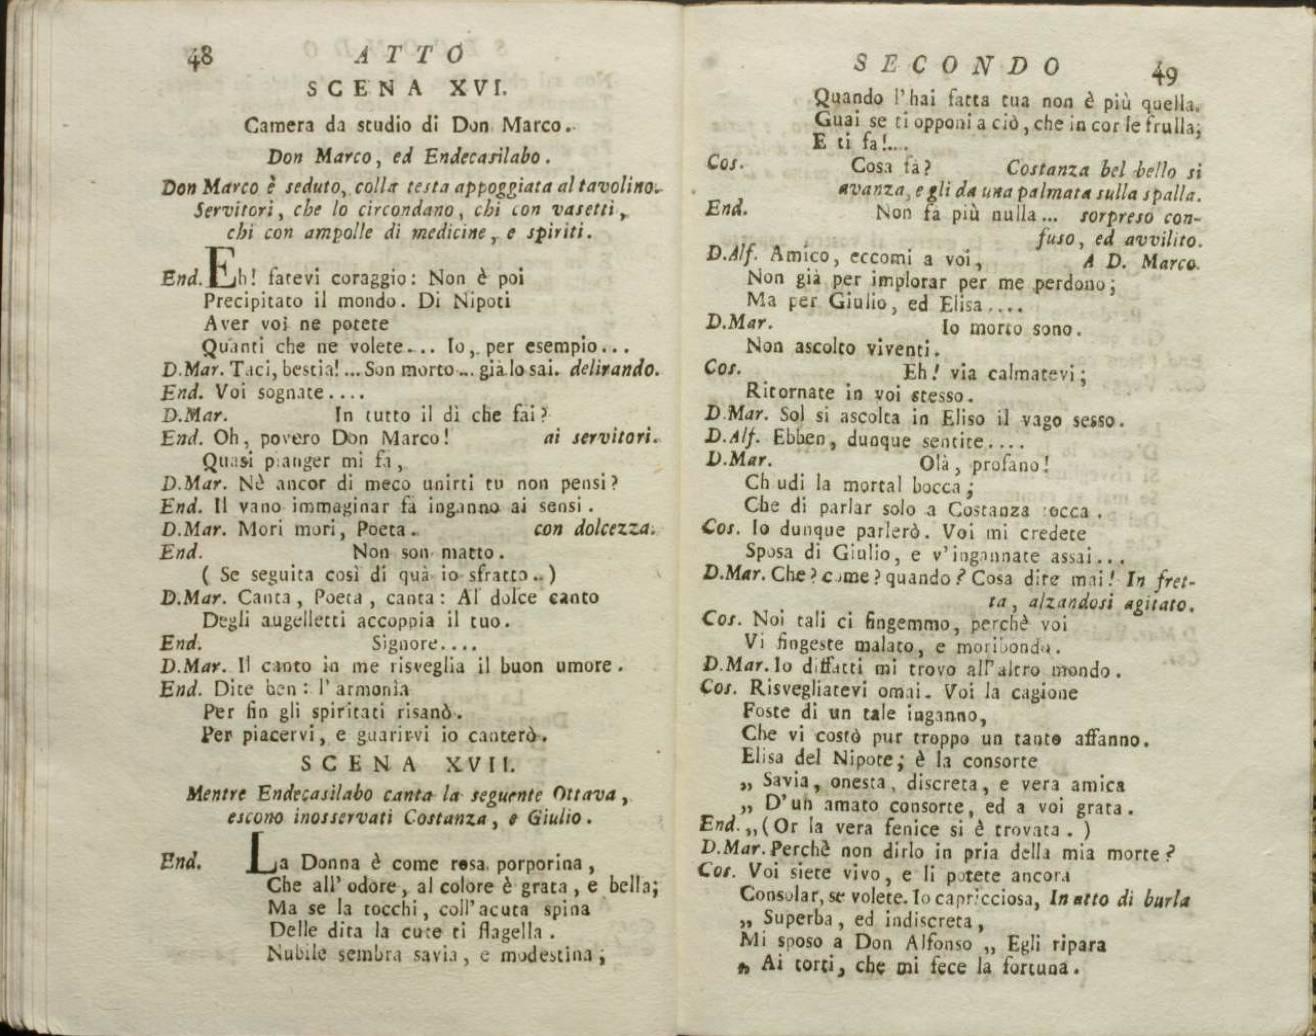 48 ATTO
SCENA XVI.
Camera da studio di Don Marco.
Don Marco, ed Endecasilabo.
Don Marco è seduto, colla testa appoggiata al tavolino.
Servitori, che lo circondano, chi con vasetti,
chi con ampolle di medicine, e spiriti.
End. Eh! fatevi coraggio: Non è poi
Precipitato il mondo. Di Nipoti
Aver voi ne potete
Quanti che ne volete... Io, per esempio...
D.Mar. Taci, bestia!... Son morto... già lo sai. delirando.
End. Voi sognate....
D.Mar. In tutto il dì che fai?
End. Oh, povero Don Marco! ai servitori.
Quasi pianger mi fa,
D.Mar. Nè ancor di meco unirti tu non pensi?
End. Il vano immaginar fa inganno ai sensi.
D.Mar. Mori mori, Poeta. con dolcezza.
End. Non son matto.
( Se seguita così di quà io sfratto..)
D.Mar. Canta, Poeta, canta: Al dolce canto
Degli augelletti accoppia il tuo.
End. Signore....
D.Mar. Il canto in me risveglia il buon umore.
End. Dite ben: l'armonia
Per fin gli spiritati risanò.
Per piacervi, e guarirvi io canterò.
SCENA XVII.
Mentre Endecasilabo canta la seguente Ottava,
escono inosservati Costanza, e Giulio.
End. La Donna è come rosa porporina,
Che all' odore, al colore è grata, e bella;
Ma se la tocchi, coll'acuta spina
Delle dita la cute ti flagella.
Nubile sembra savia, e modestina;
SECONDO 49
Quando l'hai fatta tua non è più quella.
Guai se ti opponi a ciò, che in cor le frulla;
E ti fa!....
Cos. Cosa fà? Costanza bel bello si
avanza, e gli da una palmata sulla spalla.
End. Non fa più nulla... sorpreso con-
fuso, ed avvilito.
D.Alf. Amico, eccomi a voi, A D. Marco.
Non già per implorar per me perdono;
Ma per Giulio, ed Elisa....
D.Mar. Io morto sono.
Non ascolto viventi.
Cos. Eh! via calmatevi;
Ritornate in voi stesso.
D.Mar. Sol si ascolta in Eliso il vago sesso.
D.Alf. Ebben, dunque sentite....
D.Mar. Olà, profano!
Ch udi la mortal bocca;
Che di parlar solo a Costanza tocca.
Cos. Io dunque parlerò. Voi mi credete
Sposa di Giulio, e v'ingannate assai...
D.Mar. Che? come? quando? Cosa dite mai! In fret-
ta, alzandosi agitato.
Cos. Noi tali ci fingemmo, perchè voi
Vi fingeste malato, e moribondo.
D.Mar. Io diffatti mi trovo all'altro mondo.
Cos. Risvegliatevi omai. Voi la cagione
Foste di un tale inganno,
Che vi costò pur troppo un tanto affanno.
Elisa del Nipote; è la consorte
„ Savia, onesta, discreta, e vera amica
„ D'un amato consorte, ed a voi grata.
End. „ (Or la vera fenice si è trovata. )
D.Mar. Perchè non dirlo in pria della mia morte?
Cos. Voi siete vivo, e li potete ancora
Consolar, se volete. Io capricciosa, In atto di burla
„ Superba, ed indiscreta,
Mi sposo a Don Alfonso „ Egli ripara
„ Ai torti, che mi fece la fortuna.